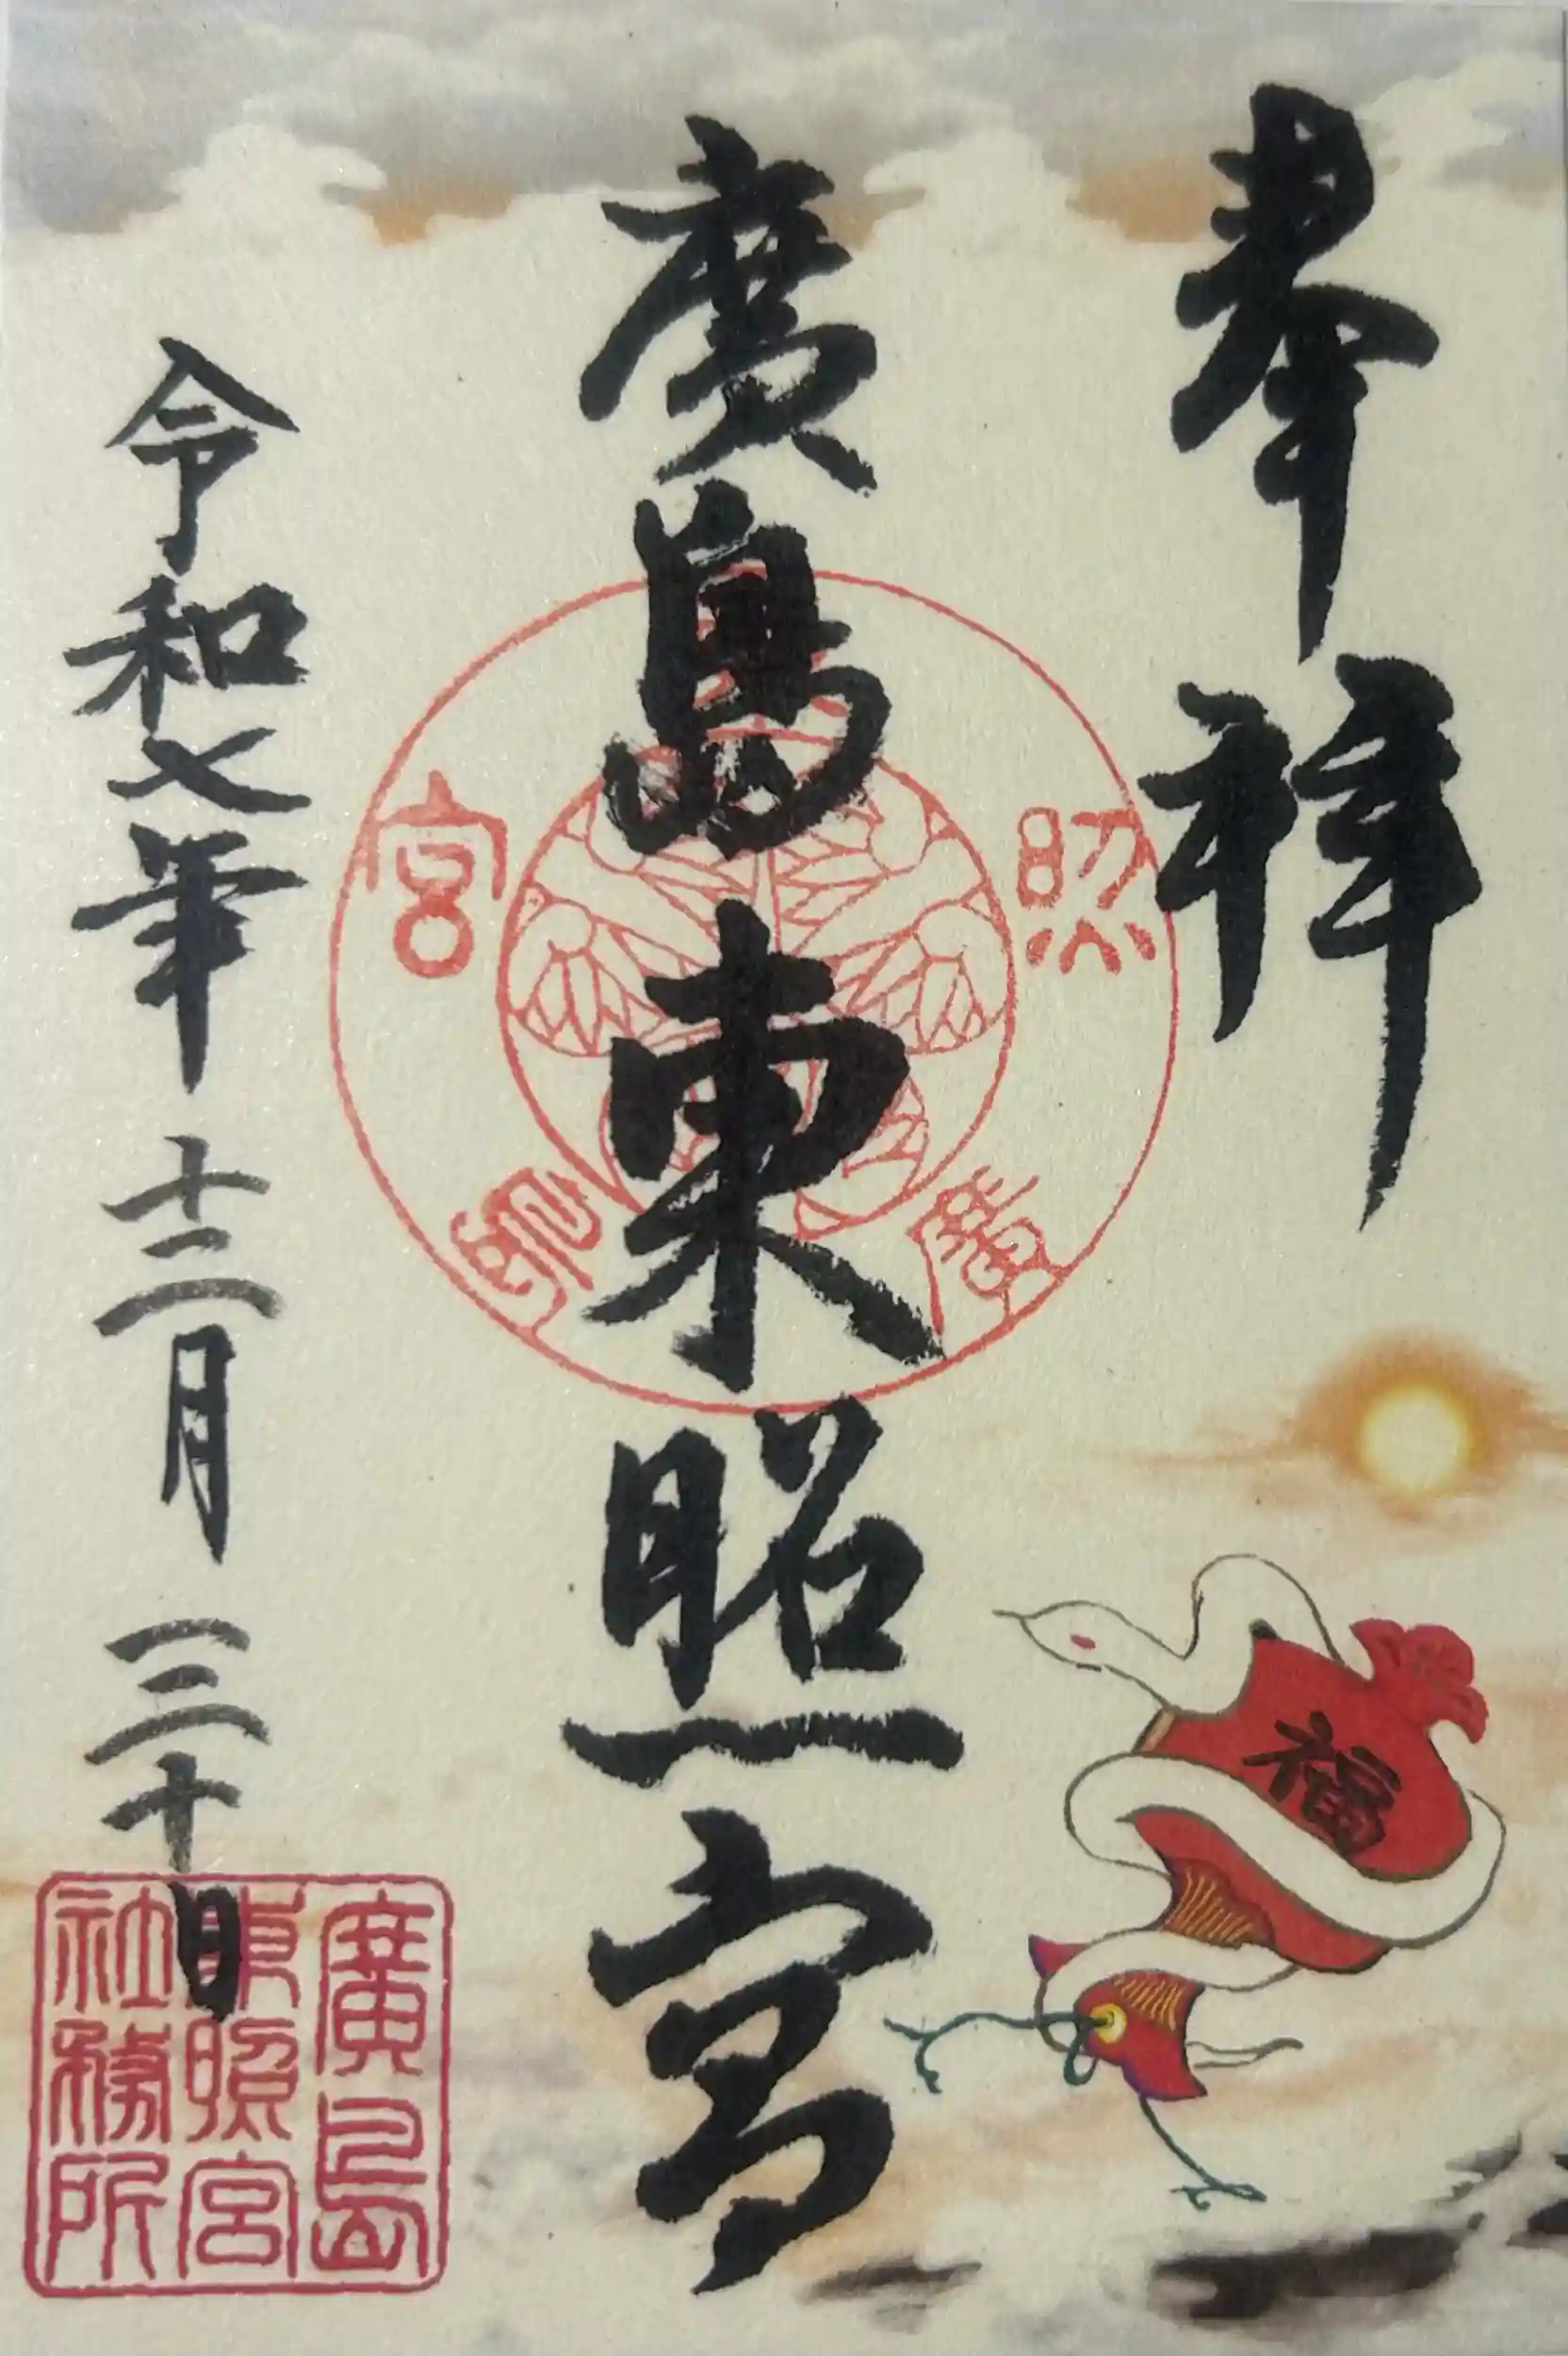 奉拝
廣島東照宮
令和七年 十二月 三十日
福
廣島
東照宮
社務所